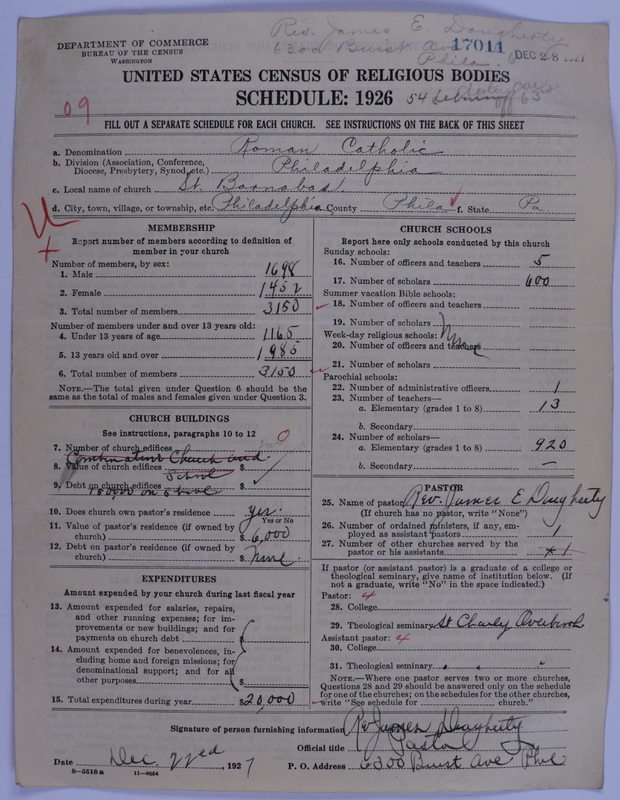 Rev. James E. Daugherty
6300 Buist Ave
Phila.
17011
DEC 28
DEPARTMENT OF COMMERCE
BUREAU OF THE CENSUS
WASHINGTON
UNITED STATES CENSUS OF RELIGIOUS BODIES
SCHEDULE: 1926
54
63
09
FILL OUT A SEPARATE SCHEDULE FOR EACH CHURCH. SEE INSTRUCTIONS ON THE BACK OF THIS SHEET
a. Denomination Roman Catholic
b. Division (Association, Conference, Diocese, Presbytery, Synod, etc.) Philadelphia
c. Local name of church St. Barnabas
d. City, town, village, or township, etc. Philadelphia County Phila f. State Pa
MEMBERSHIP
Report number of members according to definition of
member in your church
Number of members, by sex:
1. Male 1698
2. Female 1452
3. Total number of members 3150
Number of members under and over 13 years old:
4. Under 13 years of age 1165
5. 13 years old and over 1985
6. Total number of members 3150
NOTE.—The total given under Question 6 should be the
same as the total of males and females given under Question 3.
CHURCH BUILDINGS
See instructions, paragraphs 10 to 12
7. Number of church edifices 0
Combination Church and
8. Value of church edifices $
School
9. Debt on church edifices $
150,000 on School
10. Does church own pastor's residence yes
Yes or No
11. Value of pastor's residence (if owned by
church) $ 6,000
12. Debt on pastor's residence (if owned by
church) $ None
EXPENDITURES
Amount expended by your church during last fiscal year
13. Amount expended for salaries, repairs,
and other running expenses; for im-
provements or new buildings; and for
payments on church debt $
14. Amount expended for benevolences, in-
cluding home and foreign missions; for
denominational support; and for all
other purposes $
15. Total expenditures during year $20,000
CHURCH SCHOOLS
Report here only schools conducted by this church
Sunday schools:
16. Number of officers and teachers 5
17. Number of scholars 600
Summer vacation Bible schools:
18. Number of officers and teachers
19. Number of scholars None
Week-day religious schools:
20. Number of officers and teachers
21. Number of scholars
Parochial schools:
22. Number of administrative officers 1
23. Number of teachers—
a. Elementary (grades 1 to 8) 13
b. Secondary
24. Number of scholars—
a. Elementary (grades 1 to 8) 920
b. Secondary —
PASTOR
25. Name of pastor Rev. James E Daugherty
(If church has no pastor, write "None")
26. Number of ordained ministers, if any, em-
ployed as assistant pastors 1
27. Number of other churches served by the
pastor or his assistants 1
If pastor (or assistant pastor) is a graduate of a college or
theological seminary, give name of institution below. (If
not a graduate, write "No" in the space indicated.)
Pastor: 4
28. College
29. Theological seminary St Charles Overbrook
Assistant pastor: 4
30. College
31. Theological seminary " "
NOTE.—Where one pastor serves two or more churches,
Questions 28 and 29 should be answered only on the schedule
for one of the churches; on the schedules for the other churches,
write "See schedule for church."
Signature of person furnishing information Rev James Daugherty
Official title Pastor
Date Dec 22ed, 1927 P. O. Address 6300 Buist Ave Phil
8-5518a 11-9054